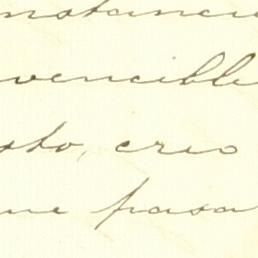 nstanci
vencible
sto, creo
ue pasa